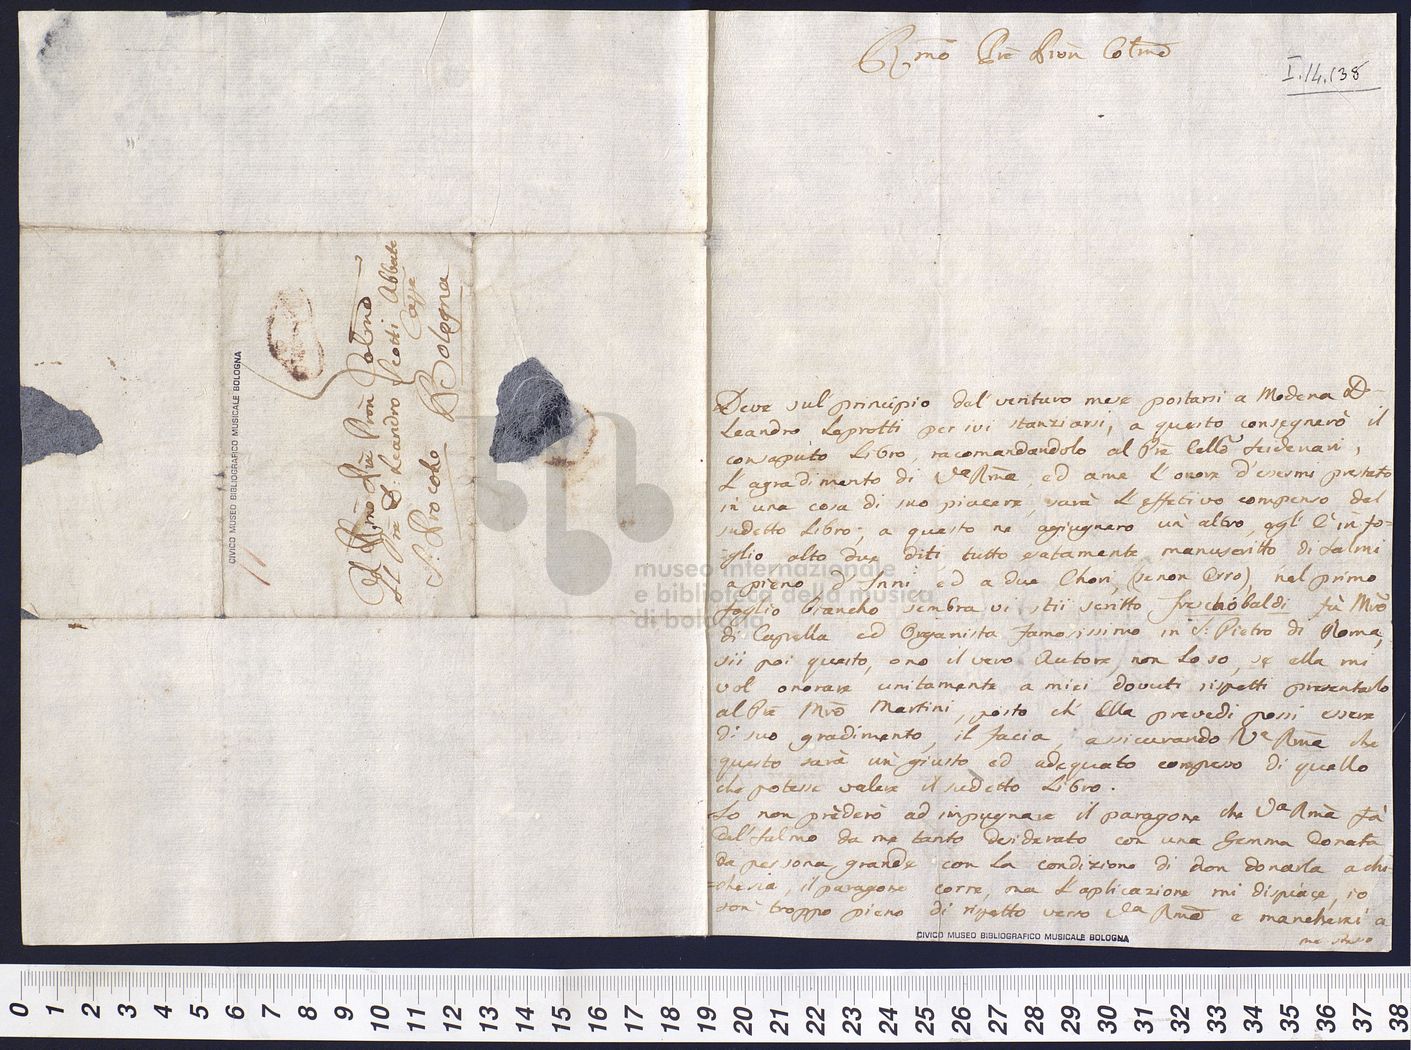 Al Rmo Pre Pron Colmo
Il Pre D: Leandro Scotti Abbate
Casse
S: Procolo Bologna
CIVICO MUSEO BIBLIOGRAFICO MUSICALE BOLOGNA
Rmo Pre Pron Colmo
I.14.138
Deve sul' principio del' venturo mese portarsi a Modena D.
Leandro Leprotti per ivi stanziarsi, a questo consegnerò il
consaputo Libro, racomandandolo al Pre
L'agradimento di Va Rma, ed a me l'onore d'esermi prestato
in una cosa di suo piacere, sarà l'effetivo compenso del
sudetto Libro; a questo ne agiugnero un altro, egli è in fo=
glio alto due diti tutto esatamente manuscritto di Salmi
a pieno d'Inni ed a due Chori, (se non erro), nel primo
foglio biancho sembra vi stii scritto freschobaldi fù Mro
di Capella ed Organista famosissimo in S: Pietro di Roma,
sii poi questo, o no il vero Autore, non lo so, se ella mi
vol onorare unitamente a miei dovuti rispetti presentarlo
al Pre Mro Martini, posto ch' Ella prevedi possi essere
di suo gradimento, il facia, assicurando Va Rma che
questo sarà un giusto ed adequato compenso di quello
che potesse valere il sudetto Libro.
Io non prēderò ad impugnare il paragone che Va Rma fà
del' salmo da me tanto desiderato con una Gemma donata
da persona grande con la condizione di non donarla a chi=
=che sia, il paragone corre, ma l'aplicazione mi dispiace, io
son' troppo pieno di rispetto verso Va Rma e mancherei a
me stesso
CIVICO MUSEO BIBLIOGRAFICO MUSICALE BOLOGNA
museo internazionale
e biblioteca della musica
di bologna
0 1 2 3 4 5 6 7 8 9 10 11 12 13 14 15 16 17 18 19 20 21 22 23 24 25 26 27 28 29 30 31 32 33 34 35 36 37 38